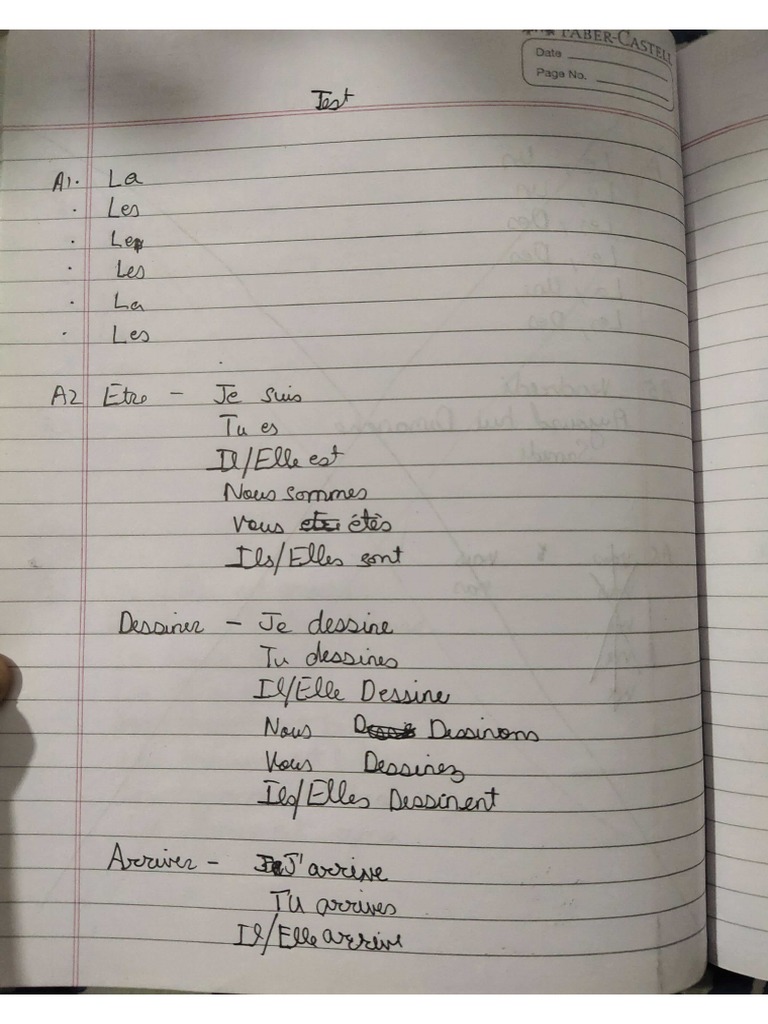 FABER-CASTELL
Date
Page No.
Test
A1. La
. Les
. Le
. Les
. La
. Les
A2 Etre - Je suis
Tu es
Il/Elle est
Nous sommes
Vous étès
Ils/Elles sont
Dessiner - Je dessine
Tu dessines
Il/Elle Dessine
Nous Dessinons
Vous Dessinez
Ils/Elles Dessinent
Arriver - J'arrive
Tu arrives
Il/Elle arrive